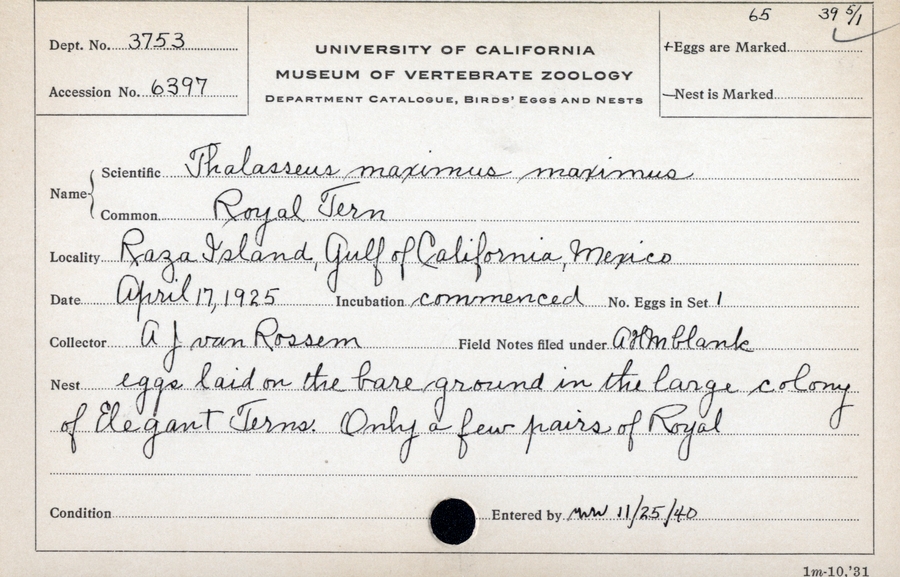 65 39 5/1
Dept. No. 3753
UNIVERSITY OF CALIFORNIA
+Eggs are Marked
MUSEUM OF VERTEBRATE ZOOLOGY
Accession No. 6397
DEPARTMENT CATALOGUE, BIRDS' EGGS AND NESTS
—Nest is Marked
Name Scientific Thalasseus maximus maximus
Common Royal Tern
Locality Raza Island, Gulf of California, Mexico
Date April 17, 1925 Incubation commenced No. Eggs in Set 1
Collector A J van Rossem Field Notes filed under
Nest eggs laid on the bare ground in the large colony
of Elegant Terns. Only a few pairs of Royal
Condition Entered by 11/25/40
1m-10,'31